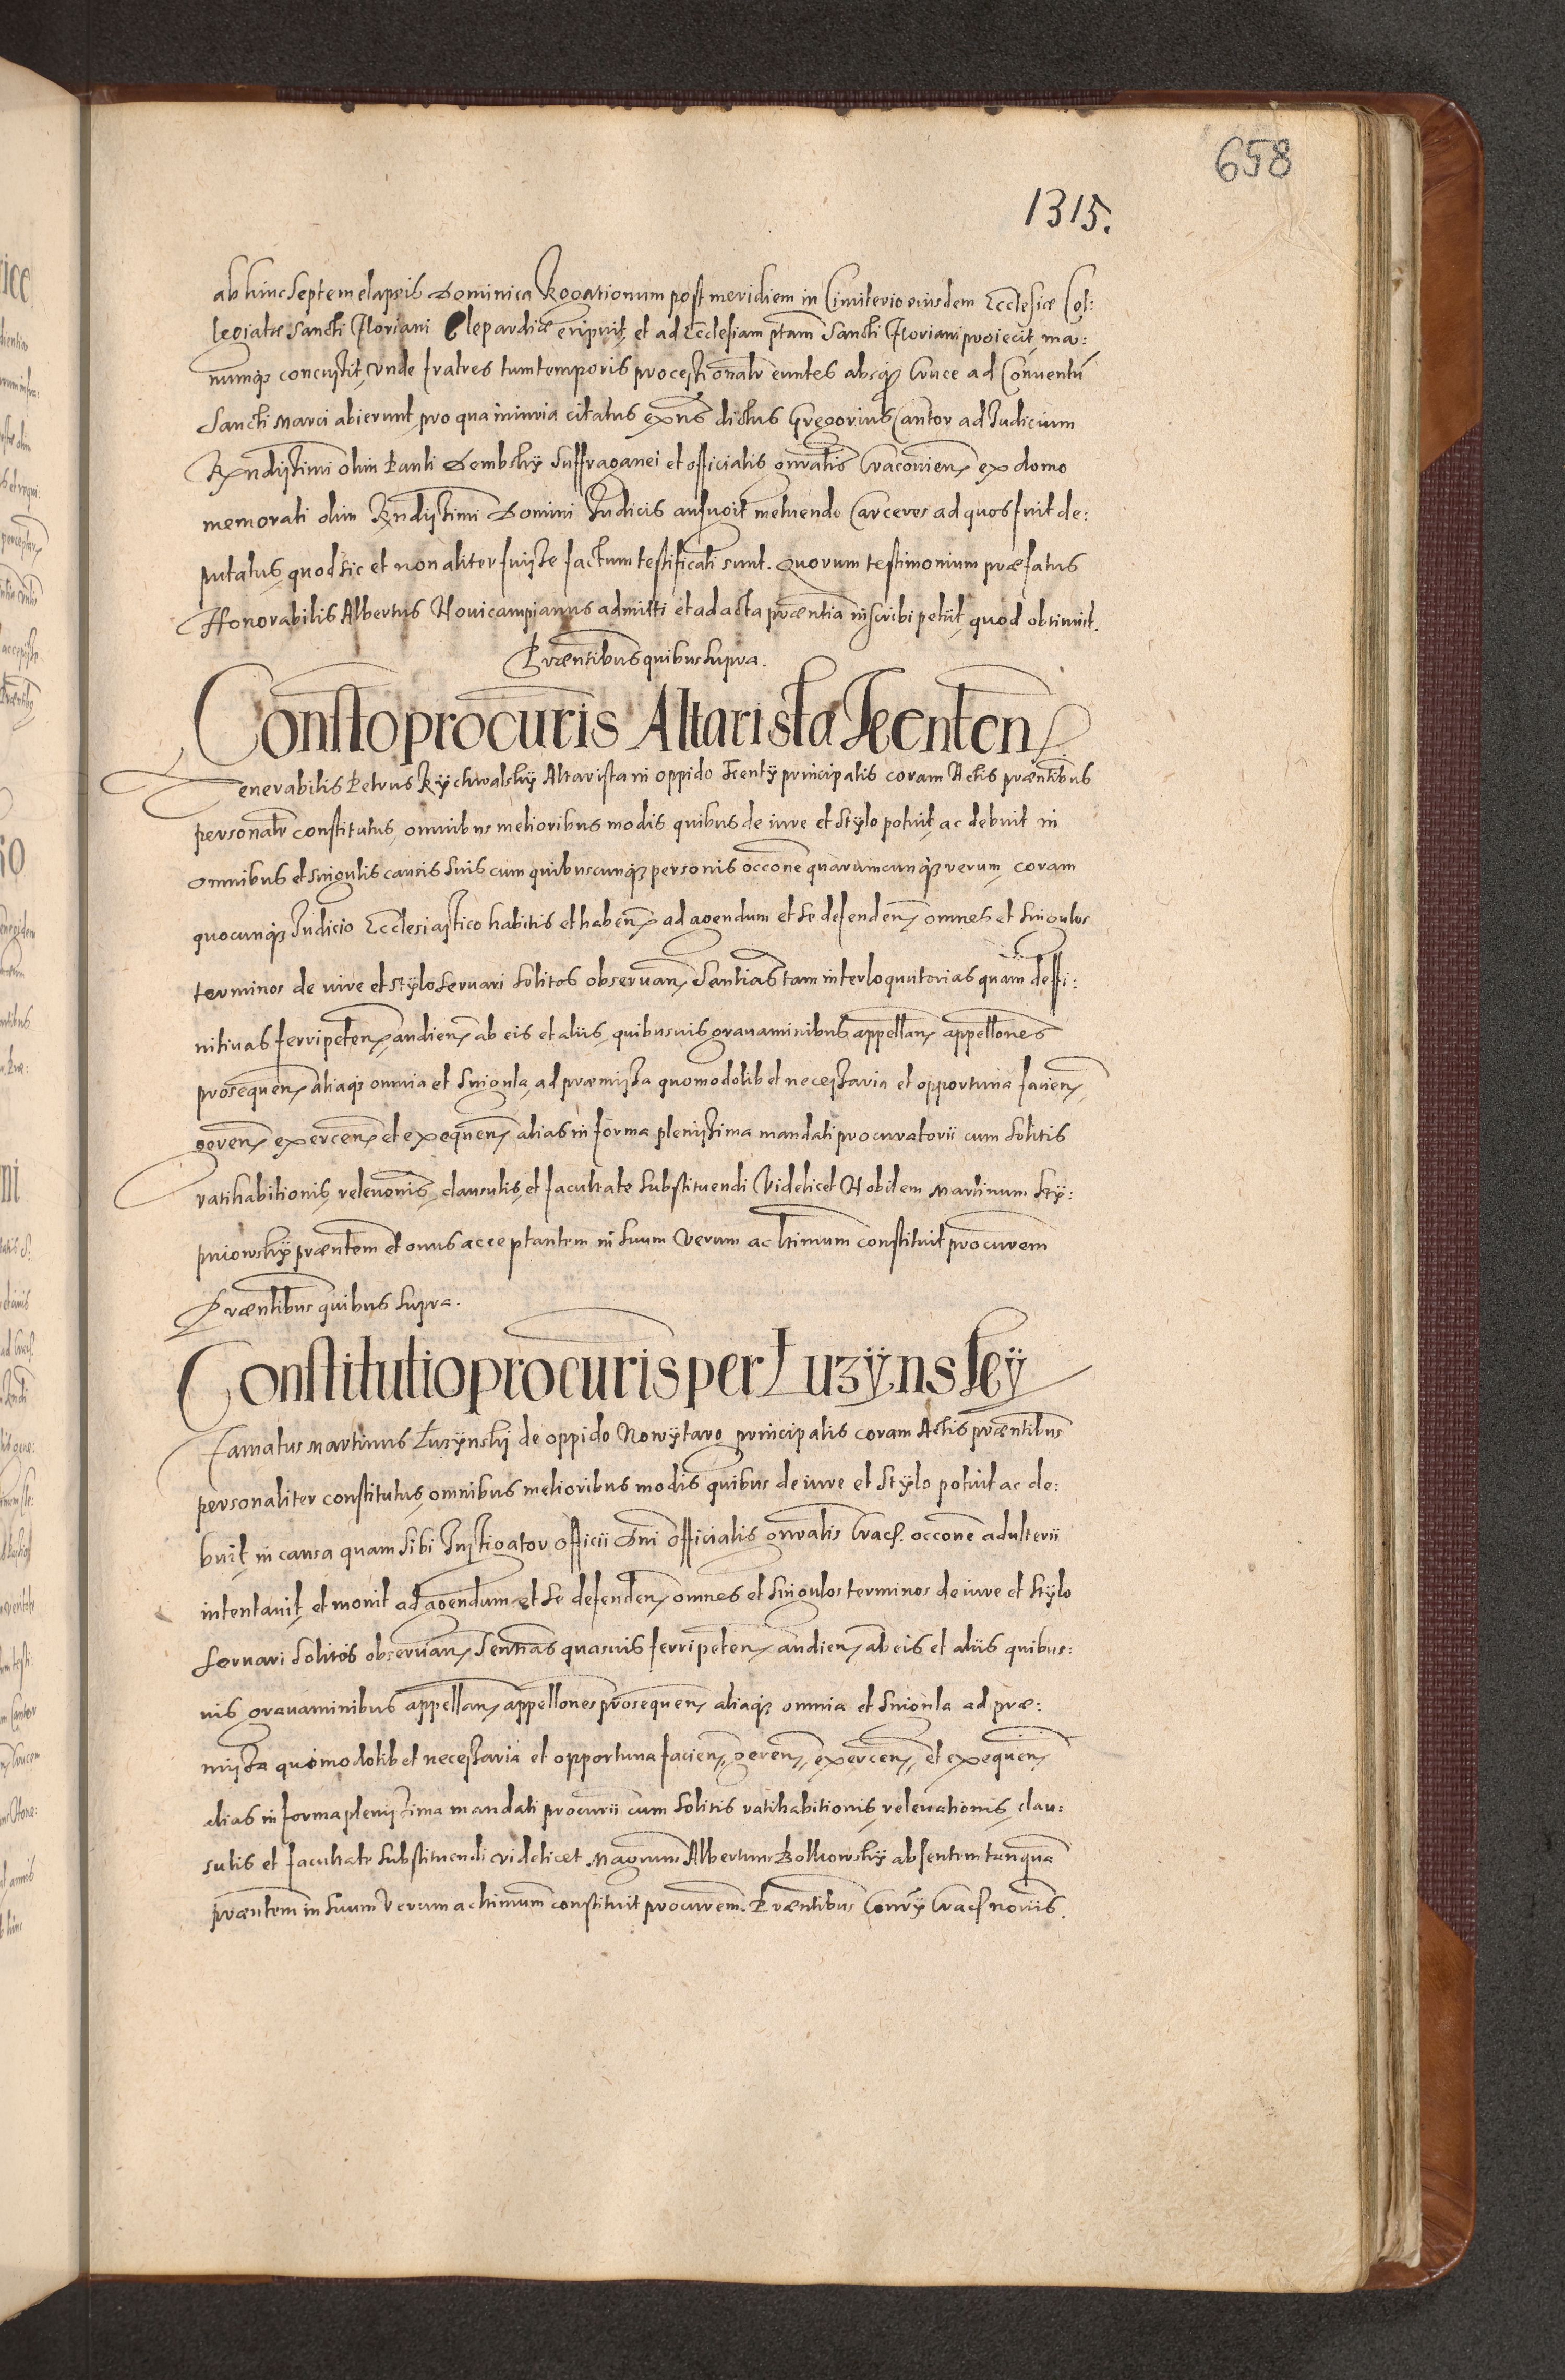 658
1315.
ab hinc septem elapsis Dominica Rogationum post meridiem in Cimiterio eiusdem Ecclesiæ Col:
legiatæ Sancti Floriani Clepardiæ eripuit, et ad Ecclesiam ptam Sancti Floriani proiecit, ma:
numq3 concussit, unde fratres tum temporis processionalr euntes absq3 Cruce ad Conventū
Sancti Marci abierunt, pro qua iniuria citatus exns dictus Gregorius Cantor ad Iudicium
Rxndissimi olim Pauli Dembsky Suffraganei et officialis gnralis Cracovien ex domo
memorati olim Rxndissimi Domini Iudicis aufugit metuendo Carceres ad quos fuit de:
putatus, quod sic et non aliter fuisse factum testificati sunt. Quorum testimonium præfatus
Honorabilis Albertus Novicampianus admitti et ad acta præntia inscribi petiit, quod obtinuit.
Præntibus quibus supra.
Constto procuris Altarista Kenten
Venerabilis Petrus Rychwalsky Altarista in oppido Kenty principalis coram Actis præntibus
personalr constitutus, omnibus melioribus modis quibus de iure et stylo potuit, ac debuit in
omnibus et singulis causis suis cum quibuscunq3 personis occone quarumcunq3 rerum, coram
quocunq3 Iudicio Ecclesiastico habitis et haben ad agendum et se defenden omnes et singulos
terminos de iure et stylo servari solitos observan Santias tam interloqutorias quam deffi:
nitivas ferri peten, audien ab eis et aliis, quibusvis gravaminibus appellan appellones
prosequen aliaq3 omnia et singula, ad præmissa quomodolibet necessaria et opportuna facien
geren exercen et exequen alias in forma plenissima mandati procuratorii cum solitis
ratihabitionis, relevonis, clausulis, et facultate substituendi Videlicet Nobilem Martinum Sty:
pniowsky præntem et onus acceptantem in suum verum ac ltimum constituit procurem
Præntibus quibus supra.
Constitutio procuris per Łuzynsky
Famatus Martinus Łuzynsky de oppido Nowytarg principalis coram Actis præntibus
personaliter constitutus, omnibus melioribus modis quibus de iure et stylo potuit ac de:
buit, in causa quam sibi Instigator officii Dni officialis gnralis Cracf. occone adulterii
intentavit, et movit ad agendum et se defenden omnes et singulos terminos de iure et stylo
servari solitos observan Sentias quasvis ferri peten audien ab eis et aliis quibus:
vis gravaminibus appellan appellones prosequen aliaq3 omnia et singula ad præ:
missa quomodolibet necessaria et opportuna facien, geren, exercen, et exequen
alias in forma plenissima mandati procurii cum solitis ratihabitionis, relevationis, clau:
sulis et facultate substituendi videlicet Magrum Albertum Bolhowsky absentem tanquā
præntem in suum verum ac ltimum constituit procurem. Præntibus Conry Cracf noriis.